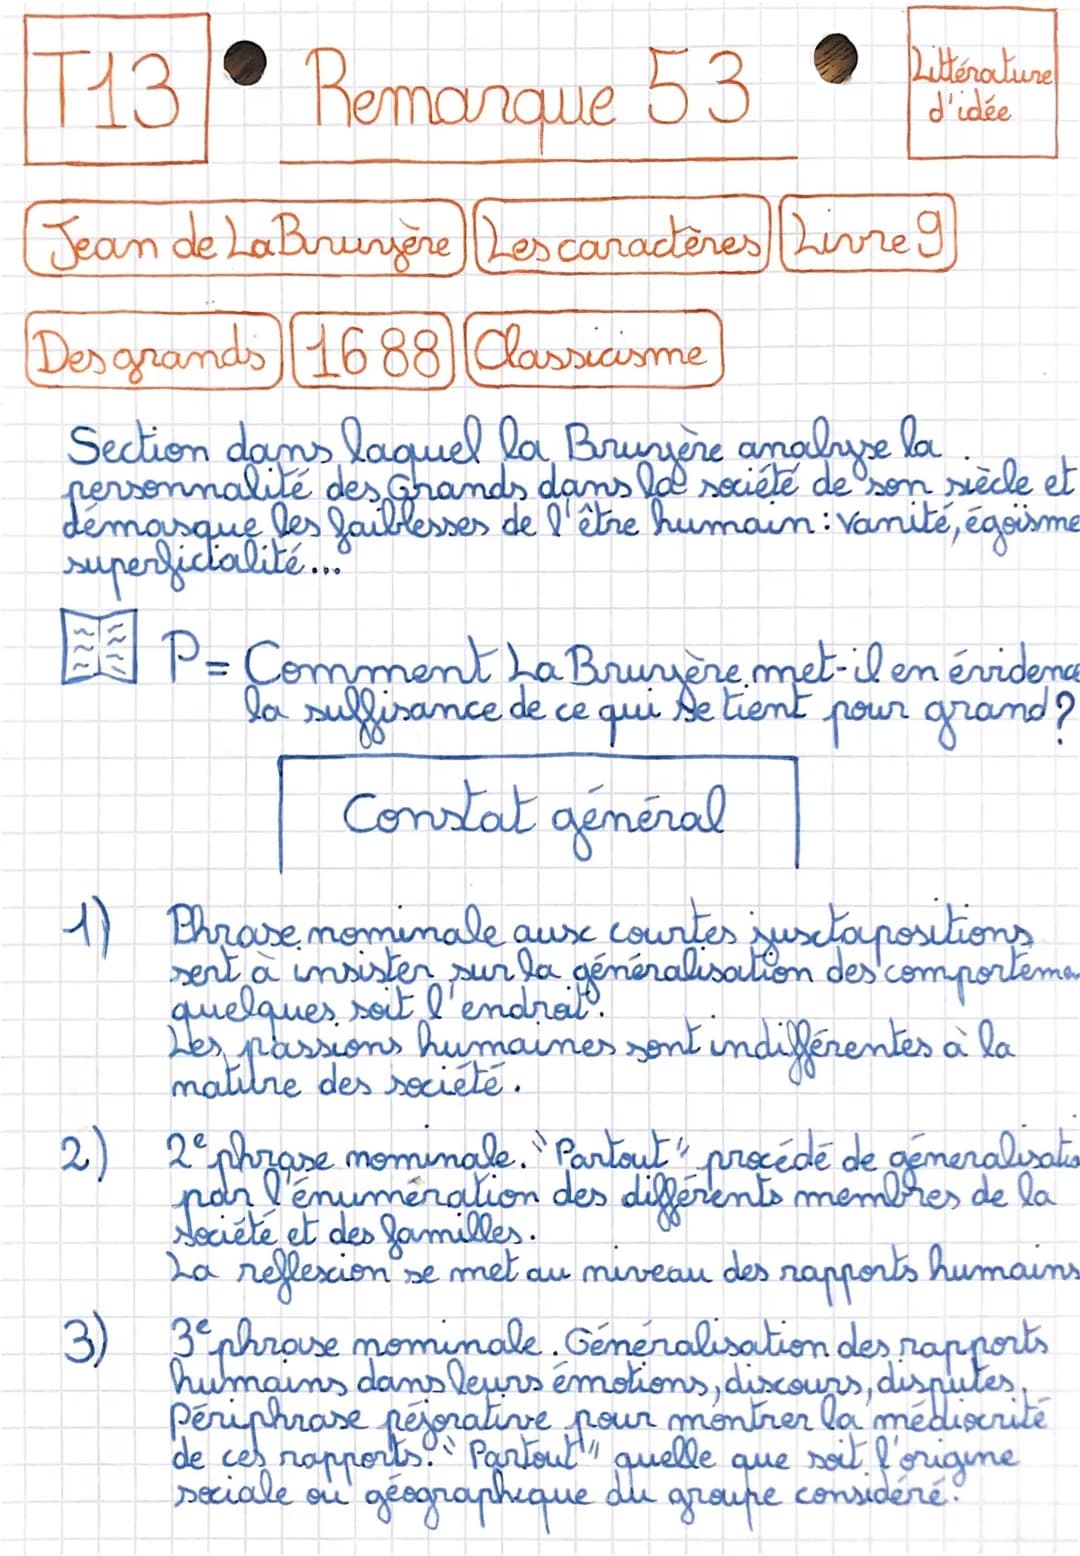 T13
Remarque 53
Littérature
d'idée
Jean de La Bruyère
Les caractères
Livre 9
Des grands
1688
Classicisme
Section dans laquel la Bruyère analyse la
personnalité des Grands dans la société de son siècle et
démasque les faiblesses de l'être humain : vanité, égoïsme
superficialité...
P = Comment La Bruyère met-il en évidence
la suffisance de ce qui se tient pour grand ?
Constat général
1) Phrase nominale aux courtes juxtapositions
sert à insister sur la généralisation des comporteme
quelques soit l'endroit.
Les passions humaines sont indifférentes à la
nature des société.
2) 2e phrase nominale. "Partout" procédé de géneralisatio
par l'énumération des différents membres de la
société et des familles.
La reflexion se met au niveau des rapports humains
3) 3e phrase nominale. Généralisation des rapports
humains dans leurs émotions, discours, disputes.
Périphrase péjorative pour montrer la médiocrité
de ces rapports. "Partout" quelle que soit l'origine
sociale ou géographique du groupe considéré.